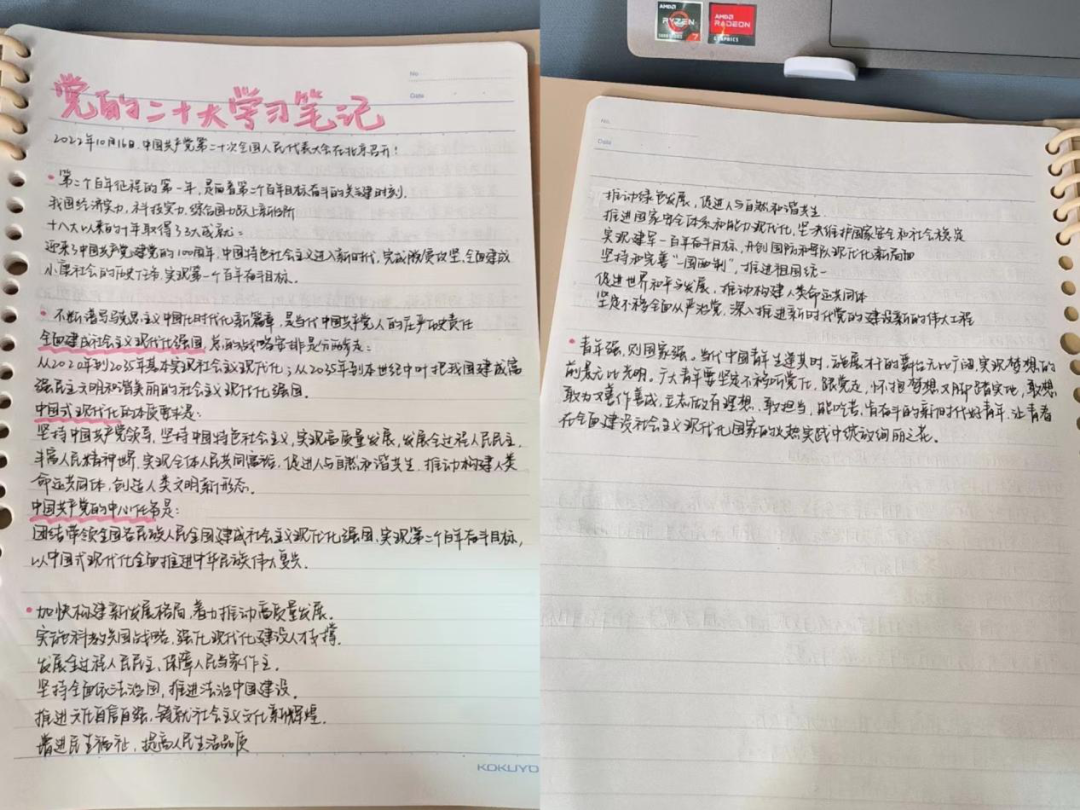 No.
Date
党的二十大学习笔记
2022年10月16日,中国共产党第二十次全国人民代表大会在北京召开!
• 第二个百年征程的第一年,是向着第二个百年目标奋斗的关键时刻.
我国经济实力,科技实力,综合国力跃上新台阶
十八大以来的十年取得了3大成就:
迎来了中国共产党建党的100周年,中国特色社会主义进入新时代,完成脱贫攻坚,全面建成
小康社会的历史任务,实现第一个百年奋斗目标.
• 不断谱写马克思主义中国化时代化新篇章,是当代中国共产党人的庄严历史责任
全面建成社会主义现代化强国,总的战略安排是分两步走:
从2020年到2035年基本实现社会主义现代化;从2035年到本世纪中叶把我国建成富
强民主文明和谐美丽的社会主义现代化强国.
中国式现代化的本质要求是:
坚持中国共产党领导,坚持中国特色社会主义,实现高质量发展,发展全过程人民民主,
丰富人民精神世界,实现全体人民共同富裕,促进人与自然和谐共生,推动构建人类
命运共同体,创造人类文明新形态.
中国共产党的中心任务是:
团结带领全国各民族人民全国建成社会主义现代化强国,实现第二个百年奋斗目标,
以中国式现代化全面推进中华民族伟大复兴.
• 加快构建新发展格局,着力推动高质量发展.
实施科教兴国战略,强化现代化建设人才支撑.
发展全过程人民民主,保障人民当家作主.
坚持全面依法治国,推进法治中国建设.
推进文化自信自强,铸就社会主义文化新辉煌.
增进民生福祉,提高人民生活品质
KOKUYO
AMD
RYZEN
7
AMD
RADEON
GRAPHICS
No.
Date
推动绿色发展,促进人与自然和谐共生
推进国家安全体系和能力现代化,坚决维护国家安全和社会稳定
实现建军一百年奋斗目标,开创国防和军队现代化新局面
坚持和完善"一国两制",推进祖国统一
促进世界和平与发展,推动构建人类命运共同体
坚定不移全面从严治党,深入推进新时代党的建设新的伟大工程
• 青年强,则国家强。当代中国青年生逢其时,施展才干的舞台无比广阔,实现梦想的
前景无比光明。广大青年要坚定不移听党话,跟党走,怀抱梦想又脚踏实地,敢想
敢为又善作善成,立志做有理想、敢担当,能吃苦,肯奋斗的新时代好青年,让青春
在全面建设社会主义现代化国家的火热实践中绽放绚丽之花.